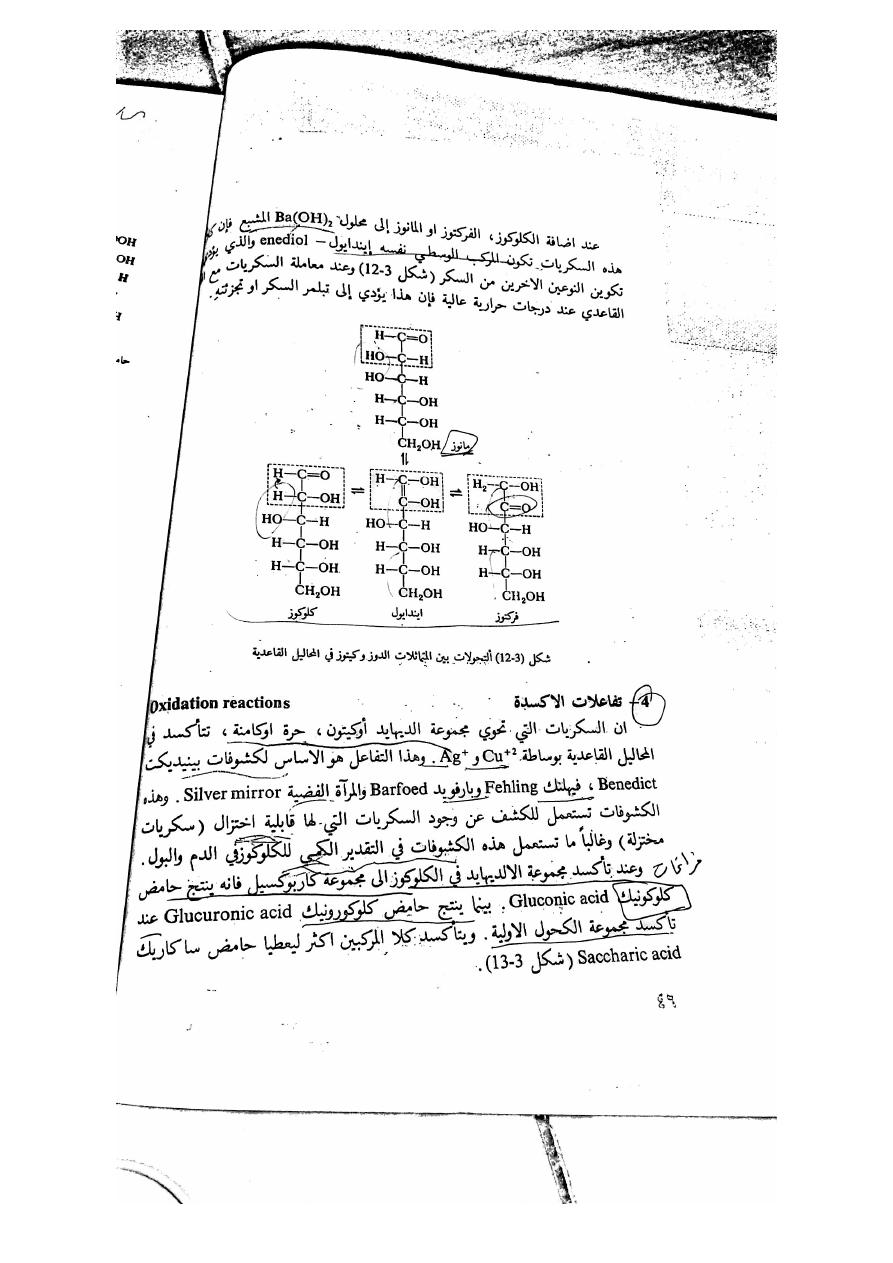 عند اضافة الكلوكوز، الفركتوز او المانوز إلى محلول Ba(OH)₂ المشبع فإن
هذه السكريات تكون المركب الوسطي نفسه إيندايول – enediol والذي
تكوين النوعين الاخرين من السكر (شكل 3-12) وعند معاملة السكريات مع
القاعدي عند درجات حرارية عالية فإن هذا يؤدي إلى تبلمر السكر او تجزئته.
H—C=O
HO—C—H
HO—C—H
H—C—OH
H—C—OH
CH₂OH مانوز
⇌
H—C=O ⇌ H—C—OH ⇌ H₂—C—OH
H—C—OH C—OH C=O
HO—C—H HO—C—H HO—C—H
H—C—OH H—C—OH H—C—OH
H—C—OH H—C—OH H—C—OH
CH₂OH CH₂OH CH₂OH
كلوكوز ايندايول فركتوز
شكل (3-12) التحولات بين المتماثلات الدوز وكيتوز في المحاليل القاعدية
4- تفاعلات الاكسدة Oxidation reactions
ان السكريات التي تحوي مجموعة الديهايد أوكيتون، حرة اوكامنة، تتأكسد في
المحاليل القاعدية بوساطة Cu⁺² و Ag⁺. وهذا التفاعل هو الاساس لكشوفات بينيديكت
Benedict، فيهلنك Fehling وبارفويد Barfoed والمرآة الفضية Silver mirror. وهذه
الكشوفات تستعمل للكشف عن وجود السكريات التي لها قابلية اختزال (سكريات
مختزلة) وغالباً ما تستعمل هذه الكشوفات في التقدير الكمي للكلوكوزفي الدم والبول.
وعند تأكسد مجموعة الالديهايد في الكلوكوز الى مجموعة كاربوكسيل فانه ينتج حامض
كلوكونيك Gluconic acid. بينما ينتج حامض كلوكورونيك Glucuronic acid عند
تأكسد مجموعة الكحول الاولية. ويتأكسد كلا المركبين اكثر ليعطيا حامض ساكاريك
Saccharic acid (شكل 3-13).
OH
OH
H
H